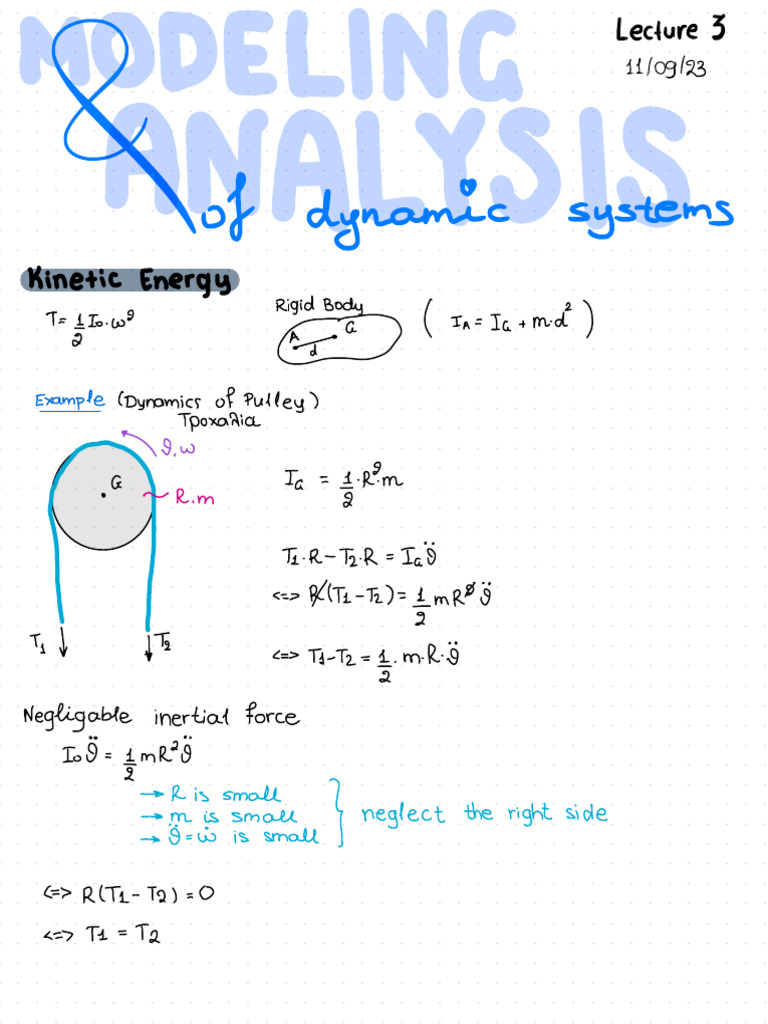 MODELING
& ANALYSIS
of dynamic systems
Lecture 3
11/09/23
Kinetic Energy
T = 1/2 I₀·ω²
Rigid Body
A G
d
( I_A = I_G + m·d² )
Example (Dynamics of Pulley)
Τροχαλία
ϑ,ω
G
R,m
T₁ T₂
I_G = 1/2·R²·m
T₁·R-T₂·R = I_G ϑ̈
<=> R(T₁-T₂) = 1/2 mR² ϑ̈
<=> T₁-T₂ = 1/2·m·R·ϑ̈
Negligable inertial force
I₀ϑ̈ = 1/2 mR²ϑ̈
→ R is small
→ m is small
→ ϑ̈=ω̇ is small
neglect the right side
<=> R(T₁-T₂) = 0
<=> T₁ = T₂